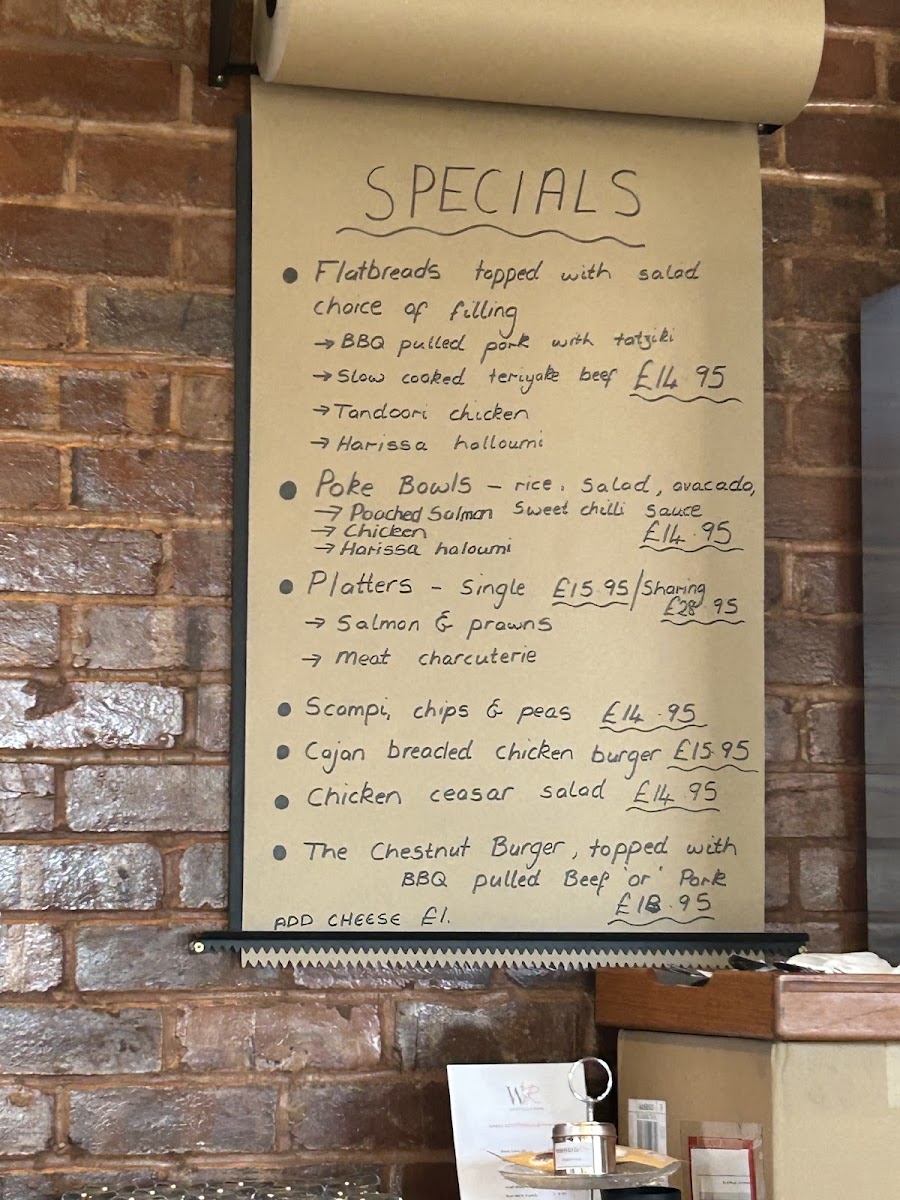 SPECIALS
• Flatbreads topped with salad
choice of filling
→ BBQ pulled pork with tatziki
→ Slow cooked teriyake beef £14.95
→ Tandoori chicken
→ Harissa halloumi
• Poke Bowls – rice, salad, avacado,
→ Poached Salmon Sweet chilli sauce
→ Chicken £14.95
→ Harissa haloumi
• Platters – Single £15.95/Sharing
£28.95
→ Salmon & prawns
→ Meat charcuterie
• Scampi, chips & peas £14.95
• Cajan breaded chicken burger £15.95
• Chicken ceasar salad £14.95
• The Chestnut Burger, topped with
BBQ pulled Beef 'or' Pork
£18.95
ADD CHEESE £1.